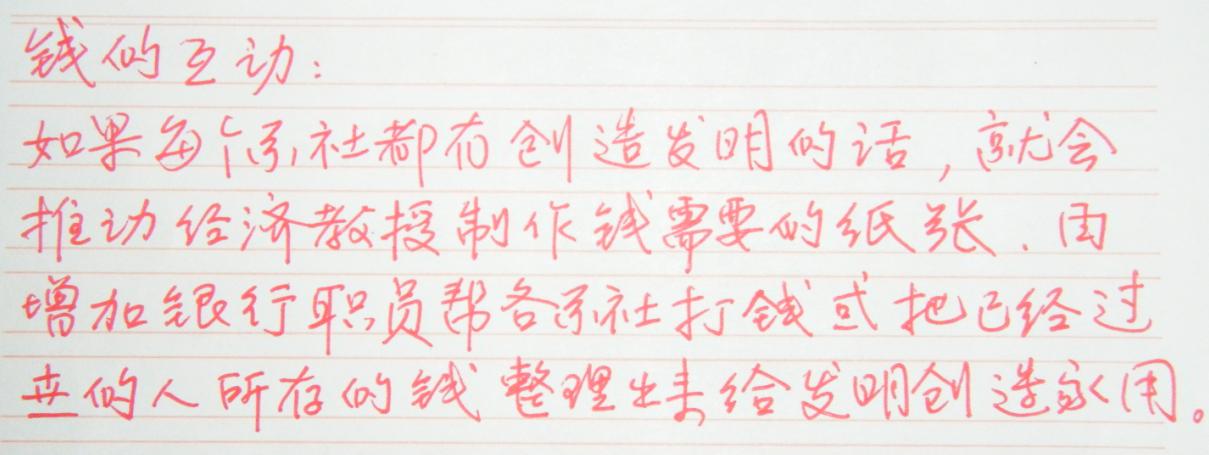 钱的互动：
如果每个系社都有创造发明的话，就会
推动经济教授制作钱需要的纸张．由
增加银行职员帮各系社打钱或把已经过
世的人所存的钱整理出来给发明创造家用。